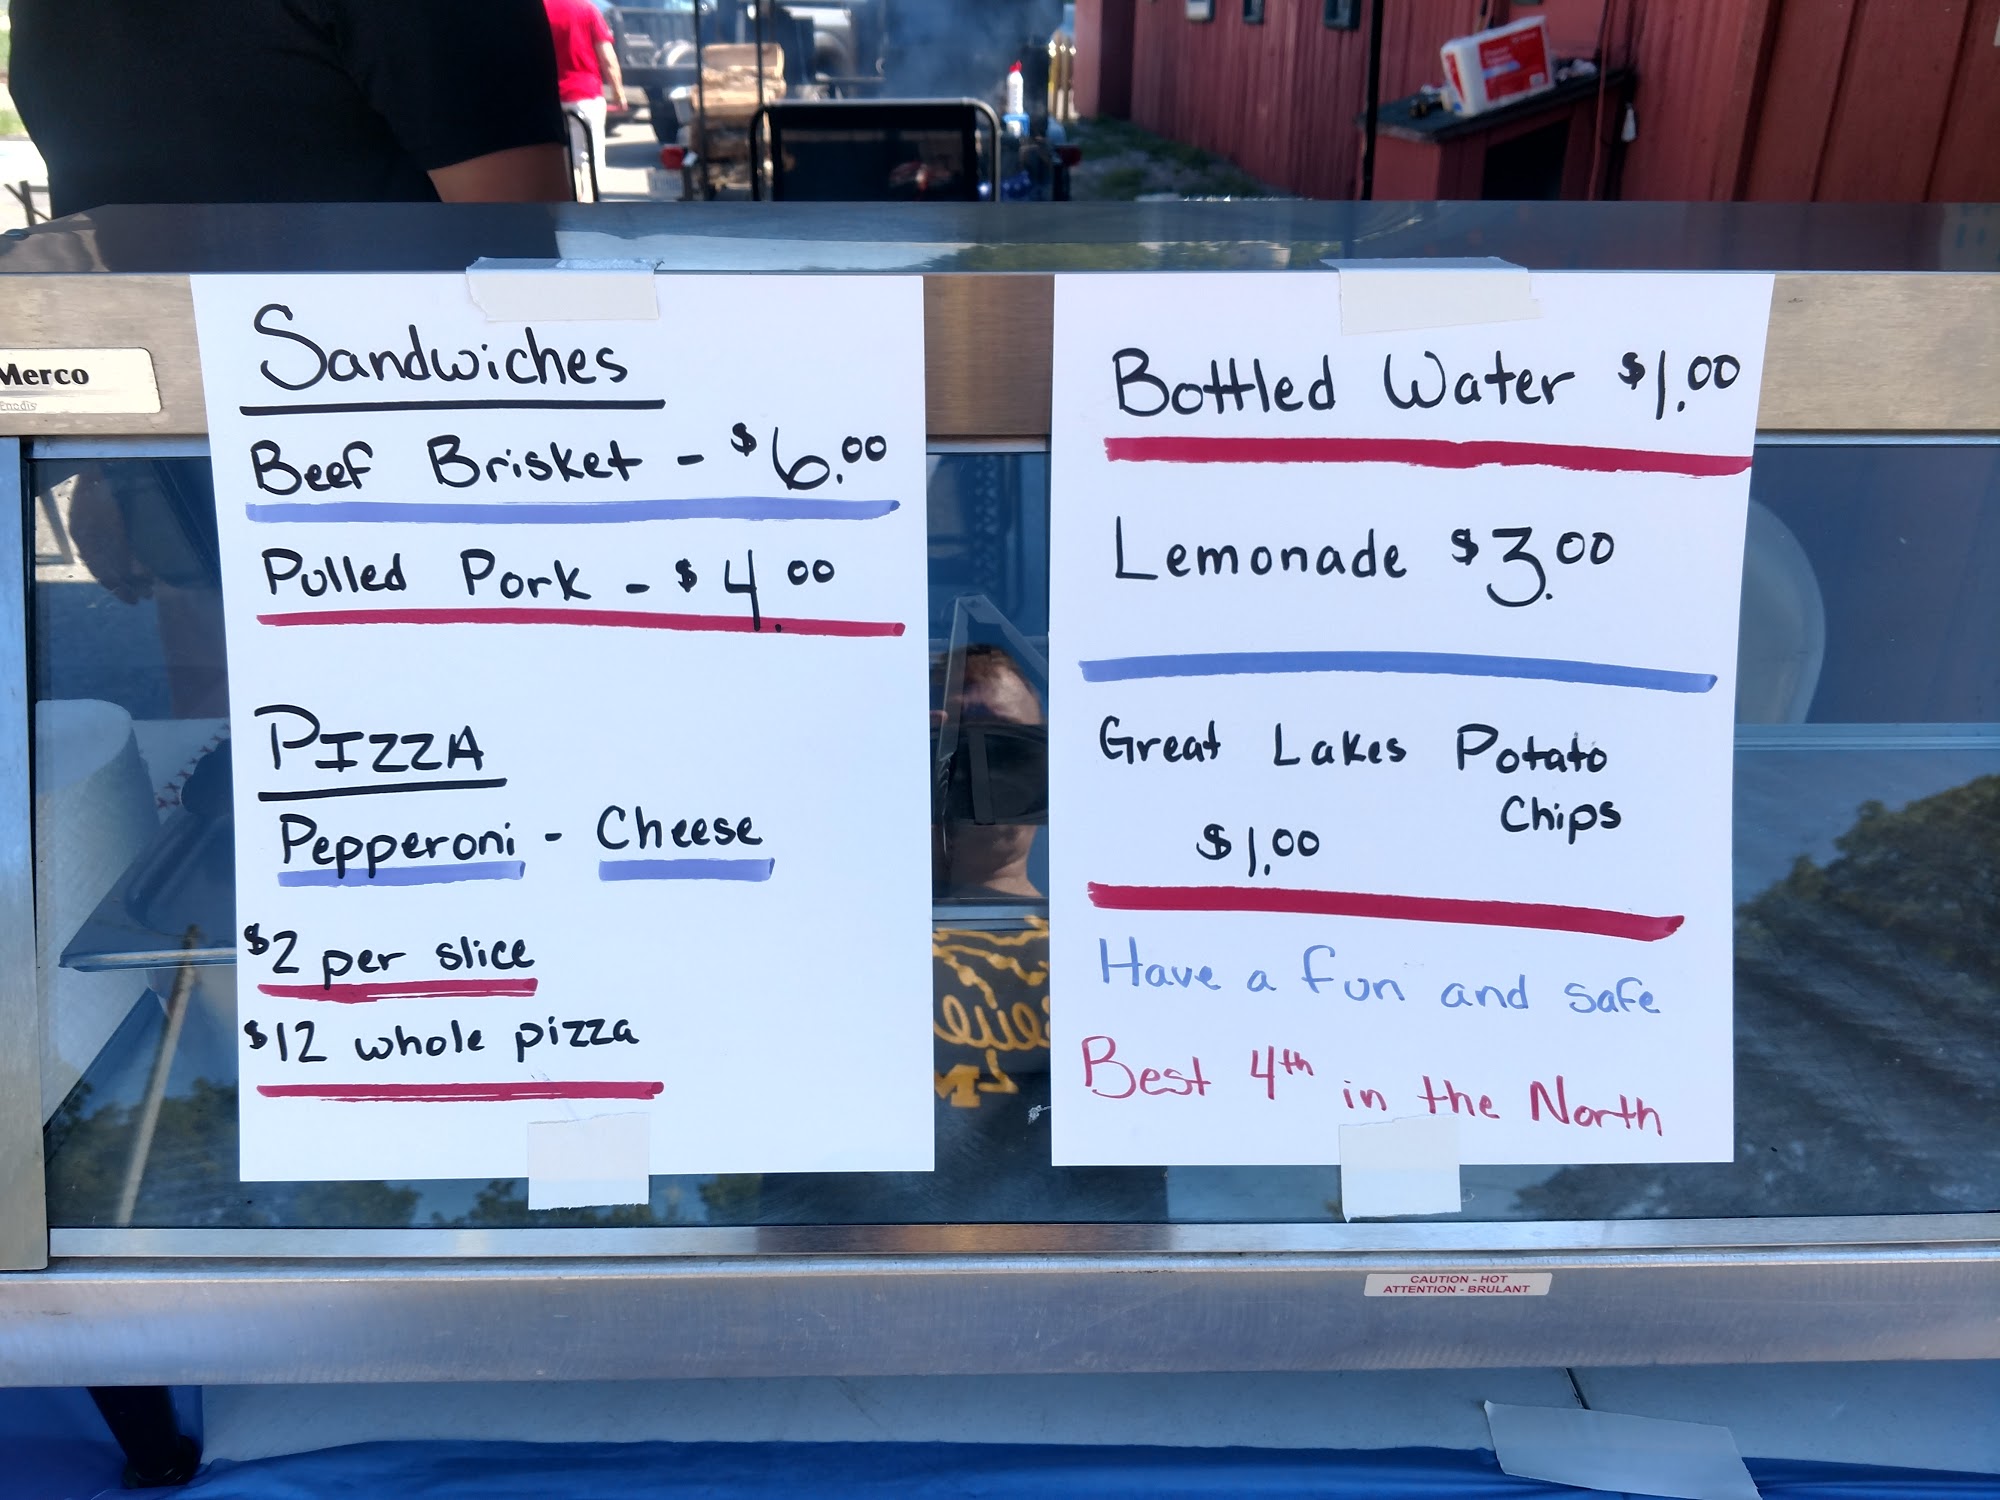 Merco
Enodis
Sandwiches
Beef Brisket - $6.00
Pulled Pork - $4.00
PIZZA
Pepperoni - Cheese
$2 per slice
$12 whole pizza
Bottled Water $1.00
Lemonade $3.00
Great Lakes Potato
Chips
$1.00
Have a fun and safe
Best 4th in the North
CAUTION - HOT
ATTENTION - BRULANT